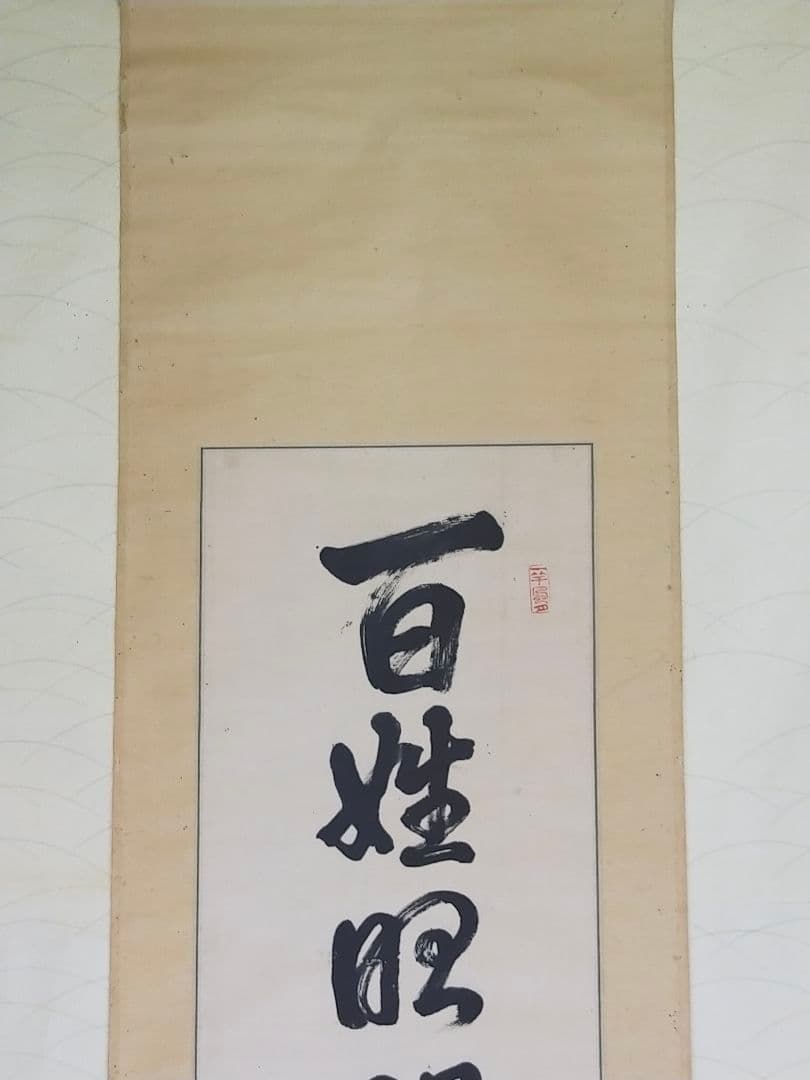 百姓昭